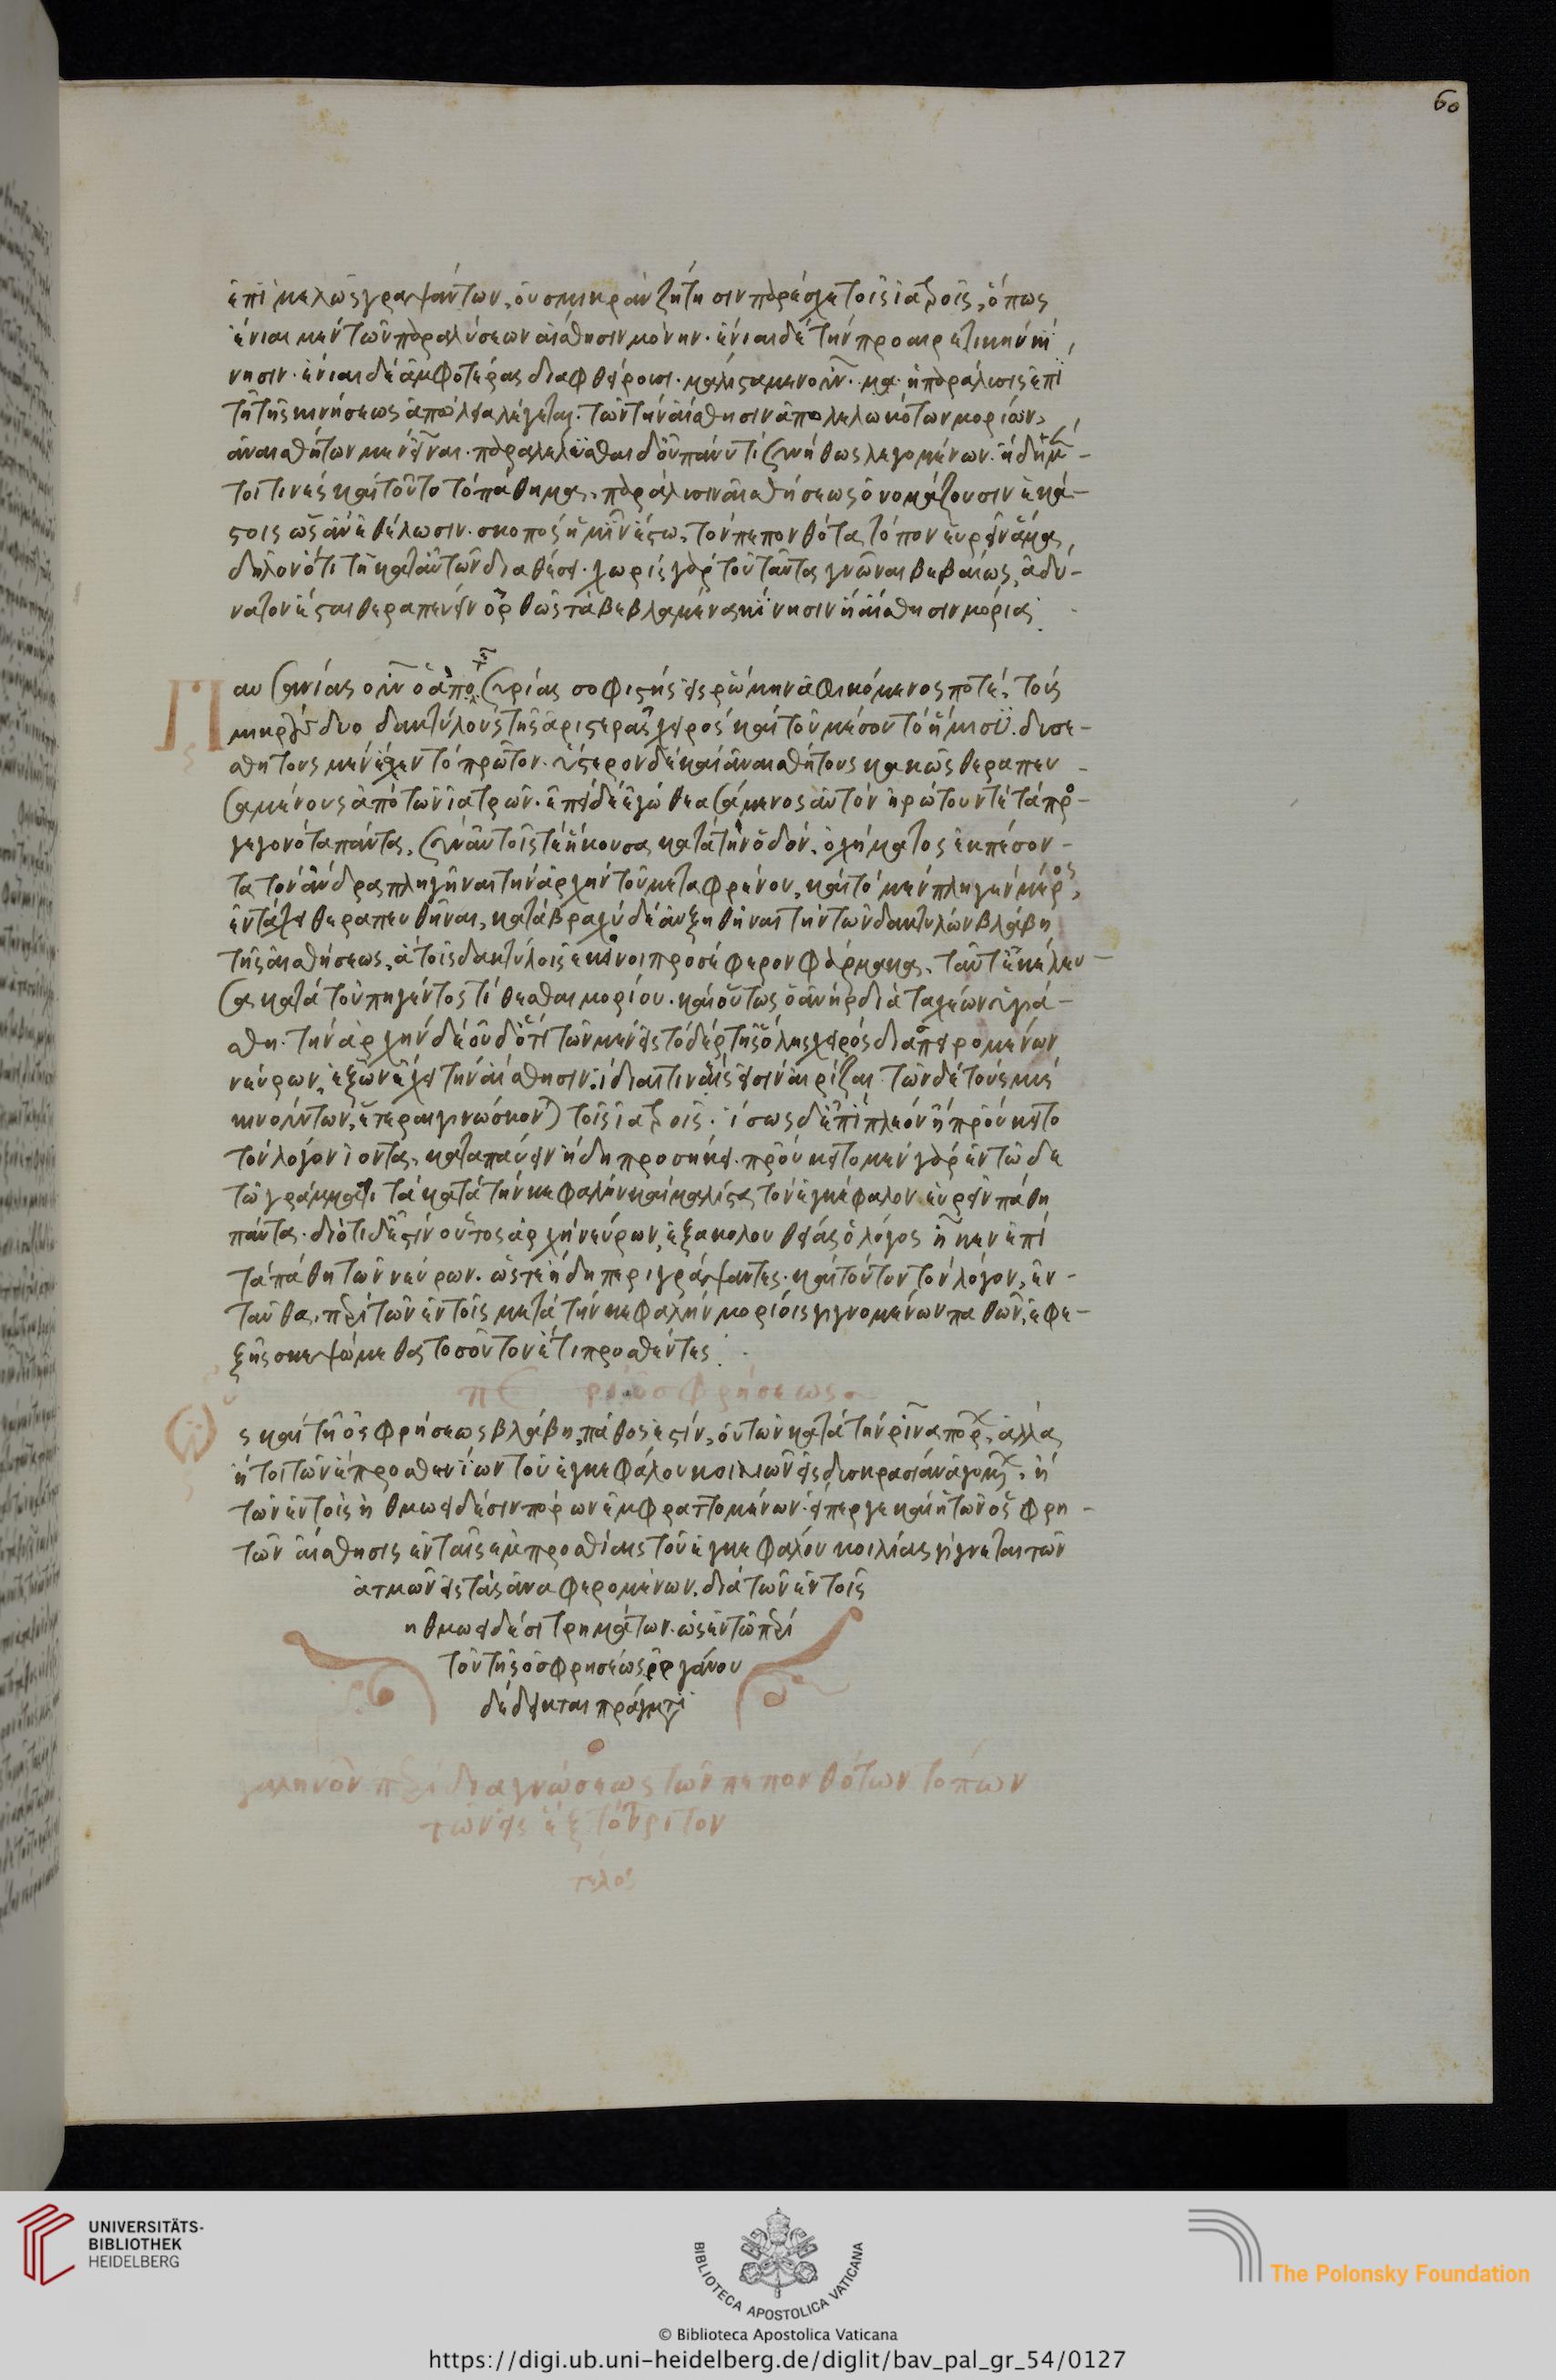 60
ἐπιμελῶς γραψάντων, οὐ σμικρὰν ζήτησιν παρέσχε τοῖς ἰατροῖς, ὅπως
ἔνιαι μὲν τῶν παραλύσεων αἴσθησιν μόνην· ἔνιαι δὲ τὴν προαιρετικὴν κί
νησιν· ἔνιαι δὲ ἀμφοτέρας διαφθείρουσι· μάλιστα μὲν οὖν ἡ παράλυσις ἐπὶ
τῇ τῆς κινήσεως ἀπωλείᾳ λέγεται· τῶν τὴν αἴσθησιν ἀπολελωκότων μορίων,
ἀναισθήτων μὲν εἶναι· παραλελύσθαι δ' οὐ πάνυ τι συνήθως λεγομένων· ἤδη μέν-
τοι τινὲς καὶ τοῦτο τὸ πάθημα, παράλυσιν αἰσθήσεως ὀνομάζουσιν ἑκά-
στοις ὡς ἂν ἐθέλωσιν· σκοπὸς ἡμῖν ἔστω, τὸν πεπονθότα τόπον εὑρεῖν ἅμα
δηλονότι τῇ κατ' αὐτῶν διαθέσει· χωρὶς γὰρ τοῦ ταῦτα γνῶναι βεβαίως, ἀδύ-
νατον ἔσται θεραπεύειν ὀρθῶς τὰ βεβλαμμένα κίνησιν ἢ αἴσθησιν μόρια
Παυσανίας οὖν ὁ ἀπὸ τῆς συρίας σοφιστὴς εἰς ῥώμην ἀφικόμενος ποτὲ, τοὺς
μικροὺς δύο δακτύλους τῆς ἀριστερᾶς χειρὸς καὶ τοῦ μέσου τὸ ἥμισυ δυσαι-
σθήτους μὲν ἔσχεν τὸ πρῶτον· ὕστερον δὲ καὶ ἀναισθήτους κακῶς θεραπευ-
σαμένους ἀπὸ τῶν ἰατρῶν· ἐπεὶ δὲ ἐγὼ θεασάμενος αὐτὸν ἠρώτουν τέ τὰ προ-
γεγονότα πάντα, σὺν αὐτοῖς τὲ ἤκουσα κατὰ τὴν ὁδὸν, ὀχήματος ἐκπεσόν-
τα τὸν ἄνδρα πληγῆναι τὴν ἀρχὴν τοῦ μεταφρένου, καὶ τὸ μὲν πληγὲν μέρος
ἐν τάχει θεραπευθῆναι, κατὰ βραχὺ δὲ αὐξηθῆναι τὴν τῶν δακτύλων βλάβη
τῆς αἰσθήσεως, ἃ τοῖς δακτύλοις ἐκεῖνοι προσέφερον φάρμακα, ταῦτ' ἐκέλευ-
σα κατὰ τοῦ πηγέντος τίθεσθαι μορίου· καὶ οὕτως ὁ ἀνὴρ διὰ ταχέων ὑγιά-
σθη· τὴν ἀρχὴν δὲ οὐδ' ὅτι τῶν μὲν εἰς τὸ δέρ τῆς ὅλης χειρὸς διασπειρομένων
νεύρων, ἐξ ὧν ἔχει τὴν αἴσθησιν ἴδιαι τινὲς εἰσὶν αἱ ῥίζαι· τῶν δὲ τοὺς μῦς
κινούντων, ἕτεραι γινώσκον τοῖς ἰατροῖς· ἴσως δ' ἐπὶ πλέον ἢ προὔκειτο
τὸν λόγον ἰόντα, καταπαύειν ἤδη προσήκει· προὔκειτο μὲν γὰρ ἐν τῷδε
τῷ γράμματι τὰ κατὰ τὴν κεφαλὴν καὶ μάλιστα τὸν ἐγκέφαλον εὑρεῖν πάθη
πάντα· διότι δ' ἐστὶν οὗτος ἀρχὴ νεύρων, ἐξακολουθείας ὁ λόγος ἧκεν ἐπὶ
τὰ πάθη τῶν νεύρων· ὥστε ἤδη περιγράψαντες καὶ τοῦτον τὸν λόγον, ἐν-
ταῦθα, περὶ τῶν ἐν τοῖς μετὰ τὴν κεφαλὴν μορίοις γιγνομένων παθῶν, ἐφε-
ξῆς σκεψώμεθα τοσοῦτον ἔτι προσθέντες
πε ρὶ ὀσφρήσεως
ὡς καὶ τῆς ὀσφρήσεως βλάβη, πάθος ἐστὶν, οὐ τῶν κατὰ τὴν ῥῖνα πόρων, ἀλλὰ
ἤτοι τῶν ἐμπροσθενίων τοῦ ἐγκεφάλου κοιλιῶν εἰς δυσκρασίαν ἀγομένων, ἢ
τῶν ἐν τοῖς ἠθμοειδέσιν πόρων ἐμφραττομένων· εἴπερ γε καὶ ἡ τῶν ὀσφρη-
τῶν αἴσθησις ἐν ταῖς ἐμπροσθίαις τοῦ ἐγκεφάλου κοιλίαις γίγνεται τῶν
ἀτμῶν εἰς τὰς ἀναφερομένων, διὰ τῶν ἐν τοῖς
ἠθμοειδέσι τρημάτων· ὡς ἐν τῷ περὶ
τοῦ τῆς ὀσφρήσεως ὀργάνου
δέδεικται πράγματι
γαληνοῦ περὶ διαγνώσεως τῶν πεπονθότων τόπων
τῶν εἰς ἓξ τὸ τρίτον
τέλος
UNIVERSITÄTS-
BIBLIOTHEK
HEIDELBERG
BIBLIOTECA APOSTOLICA VATICANA
The Polonsky Foundation
© Biblioteca Apostolica Vaticana
https://digi.ub.uni-heidelberg.de/diglit/bav_pal_gr_54/0127